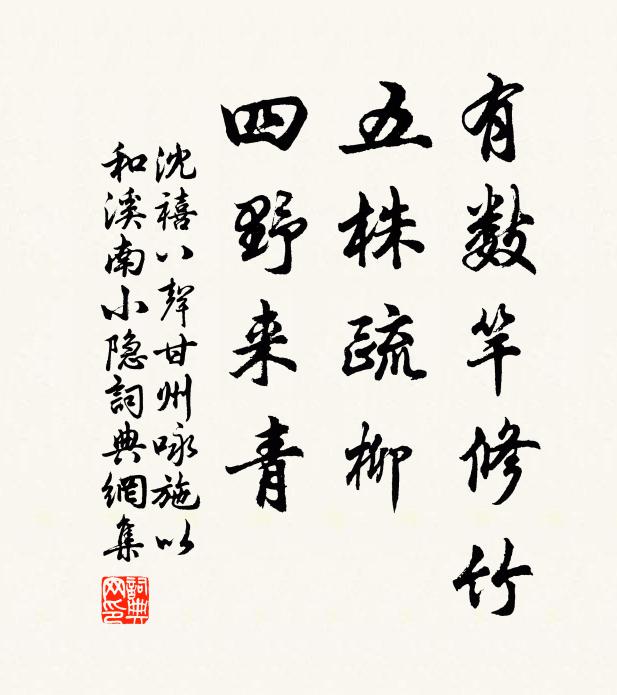 有数竿修竹
五株疏柳
四野来青
沈禧八聲甘州咏施以
和溪南小隐詞典網集
詞典網印